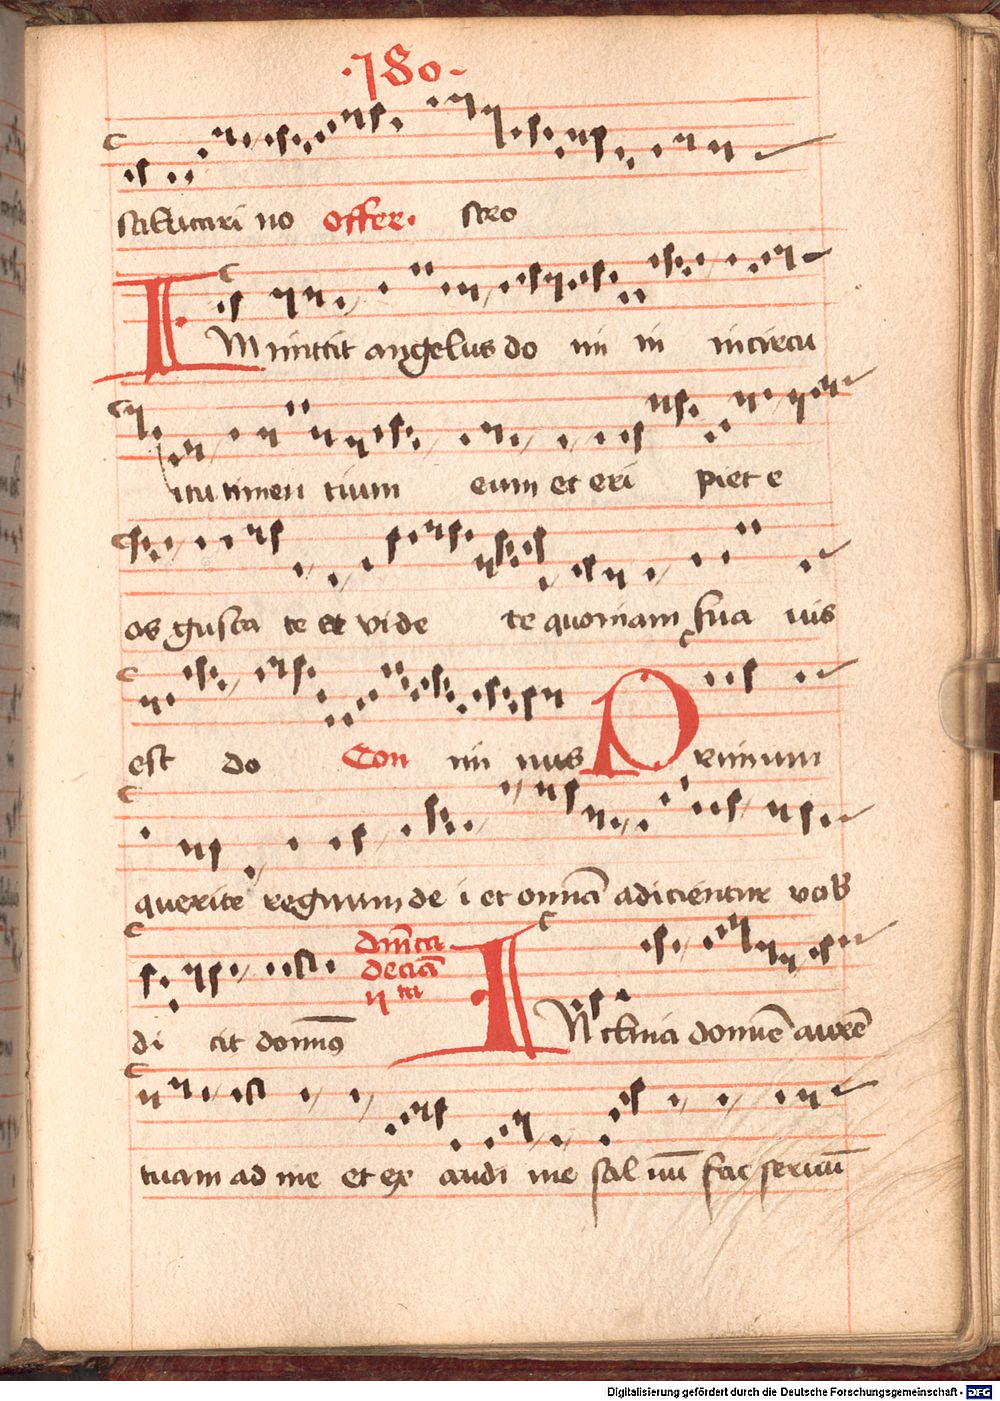 ·180·
salutari no offer· stro
IMmittit angelus do mi ni incircu
itu timen tium eum et eri piet e
os gusta te et vide te quoniam sua uis
est do Con mi nus PRimum
querite regnum de i et omnia adicientur vob
di cit dominus dm̄ca deciā
INclina domine aurē
tuam ad me et ex audi me saluū fac seruū
Digitalisierung gefördert durch die Deutsche Forschungsgemeinschaft - DFG